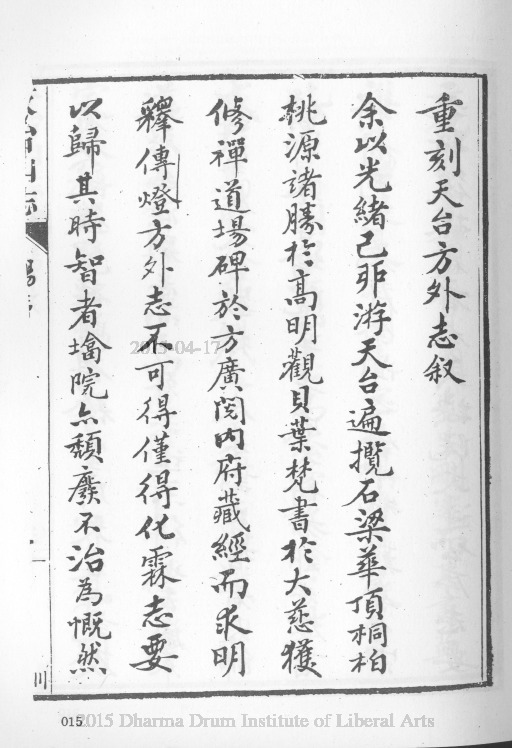 重刻天台方外志叙
余以光緒己丣游天台遍攬石梁華頂桐柏
桃源諸勝於高明觀貝葉梵書於大慈獲
修禪道場碑於方廣閲内府藏經而求明
釋傳燈方外志不可得僅得化霖志要
以歸其時智者墖院亦頹廢不治為慨然
2015-04-17
015
2015 Dharma Drum Institute of Liberal Arts